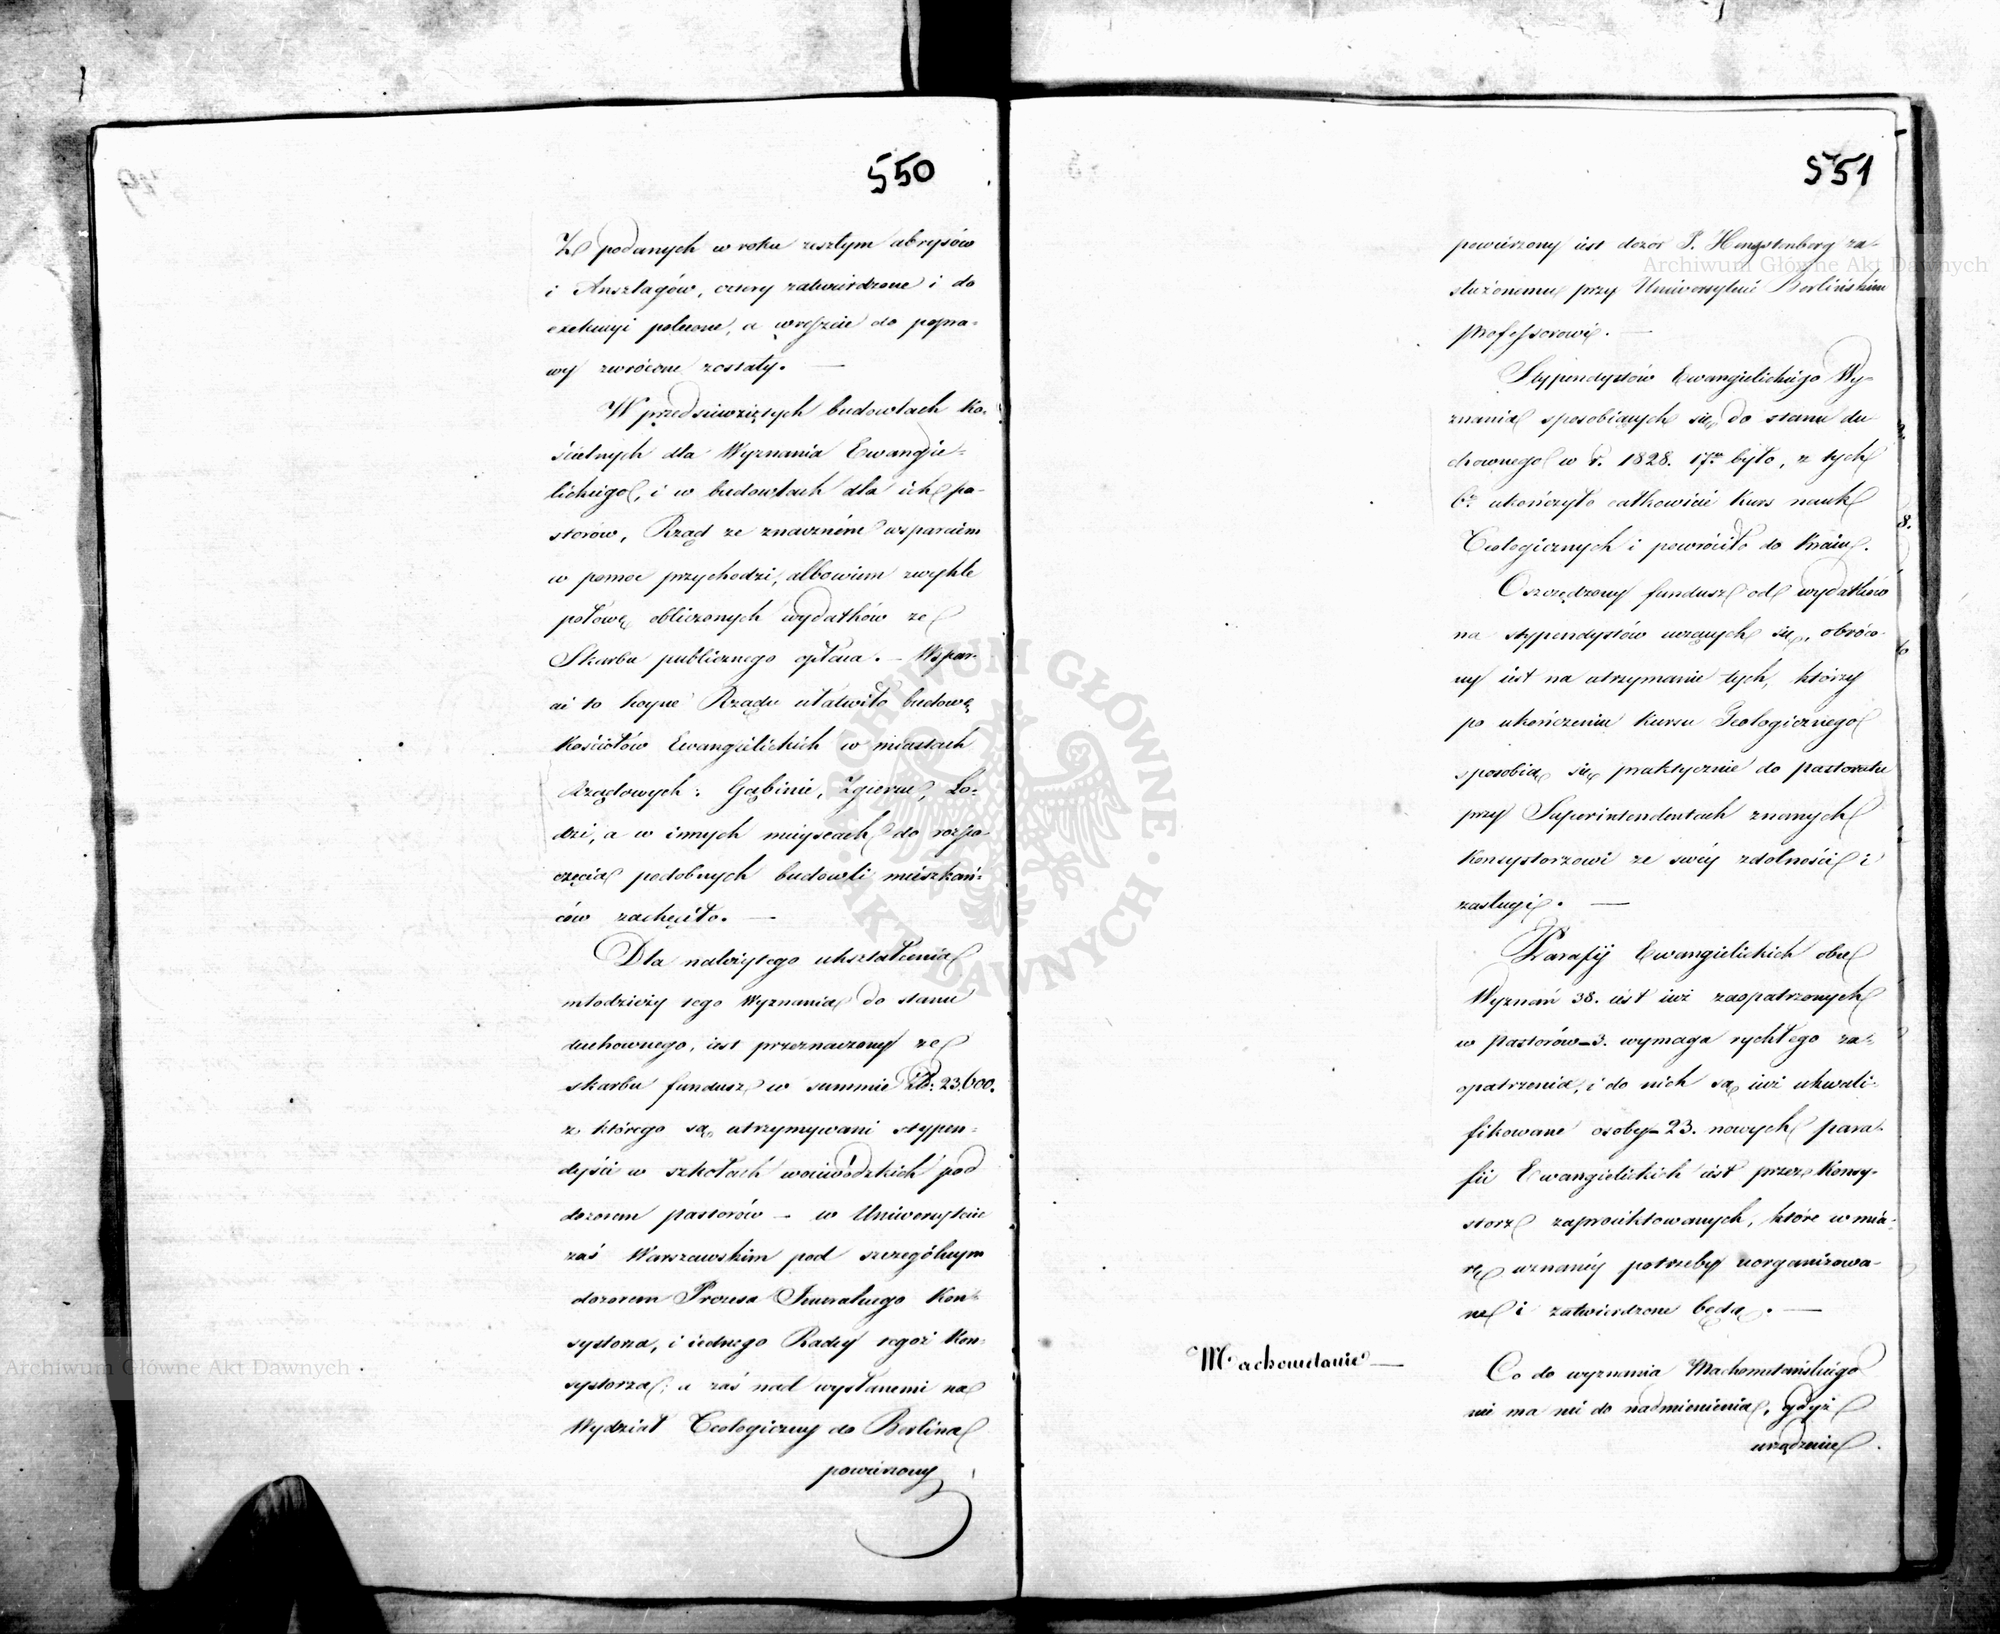 550
Z podanych w roku zeszłym abrysów
i Anszlagów, cztery zatwierdzone i do
exekucyi polecone, a wreszcie do popra-
wy zwrócone zostały. —
W przedsiewziętych budowlach Ko-
ścielnych dla Wyznania Ewangie-
lickiego, i w budowlach dla ich pa-
storów, Rząd ze znaczném wsparciem
w pomoc przychodzi, albowiem zwykle
połowę obliczonych wydatków ze
Skarbu publicznego opłaca. — Wspar-
cie to hoyne Rządu ułatwiło budowę
Kościołów Ewangielickich w miastach
Rządowych: Gąbinie, Zgierzu, Ło-
dzi, a w innych mieyscach do rozpo-
częcia podobnych budowli mieszkań-
ców zachęciło. —
Dla należytego ukształcenia
młodzieży tego Wyznania do stanu
duchownego, iest przeznaczony ze
skarbu fundusz w summie Złt: 23,600.
z którego są utrzymywani stypen-
dyści w szkołach woiewódzkich pod
dozorem pastorów — w Uniwersytecie
zaś Warszawskim pod szczególnym
dozorem Prezesa Generalnego Kon-
systorza, i iednego Radcy tegoż Kon-
systorza; a zaś nad wysłanemi na
Wydział Teologiczny do Berlina
powierzony
551
powierzony iest dozór P. Hengstenberg za-
służonemu przy Uniwersytecie Berlińskim
Professorowi. —
Stypendystów Ewangielickiego Wy-
znania sposobiących się do stanu du
chownego w r. 1828. 17tu było, z tych
6ciu ukończyło całkowicie Kurs nauk
Teologicznych i powróciło do Kraiu.
Oszczędzony fundusz od wydatków
na stypendystów uczących się, obróco-
ny iest na utrzymanie tych, którzy
po ukończeniu Kursu Teologicznego
sposobią się praktycznie do pastoratu
przy Superintendentach znanych
Konsystorzowi ze swéy zdolności i
zasługi. —
Parafij Ewangielickich obu
Wyznań 38. iest iuż zaopatrzonych
w Pastorów — 3. wymaga rychłego za-
opatrzenia, i do nich są iuż ukwali-
fikowane osoby — 23. nowych para-
fii Ewangielickich iest przez Konsy-
storz zaproiektowanych, które w mia-
rę uznanéy potrzeby uorganizowa-
ne i zatwierdzone będą. —
Machometanie —
Co do wyznania Machometańskiego
nie ma nic do nadmienienia, gdyż
urządzenie
Archiwum Główne Akt Dawnych
Archiwum Główne Akt Dawnych
ARCHIWUM GŁÓWNE · AKT DAWNYCH ·